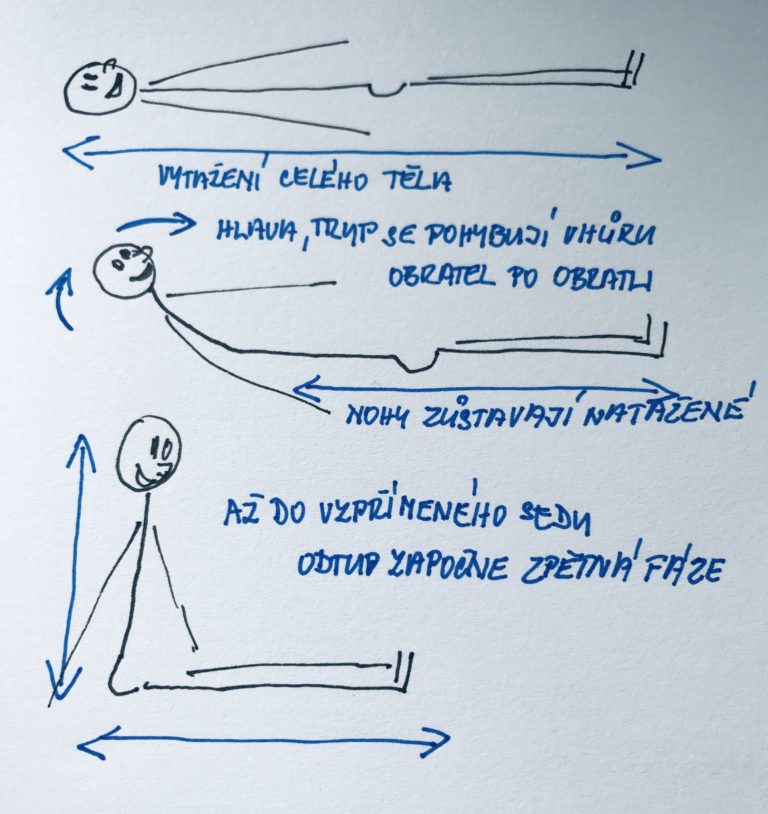 VYTAŽENÍ CELÉHO TĚLA
HLAVA, TRUP SE POHYBUJÍ VHŮRU
OBRATEL PO OBRATLI
NOHY ZŮSTAVAJÍ NATAŽENÉ
AŽ DO VZPŘÍMENÉHO SEDU
ODTUD ZAPOČNE ZPĚTNÁ FÁZE